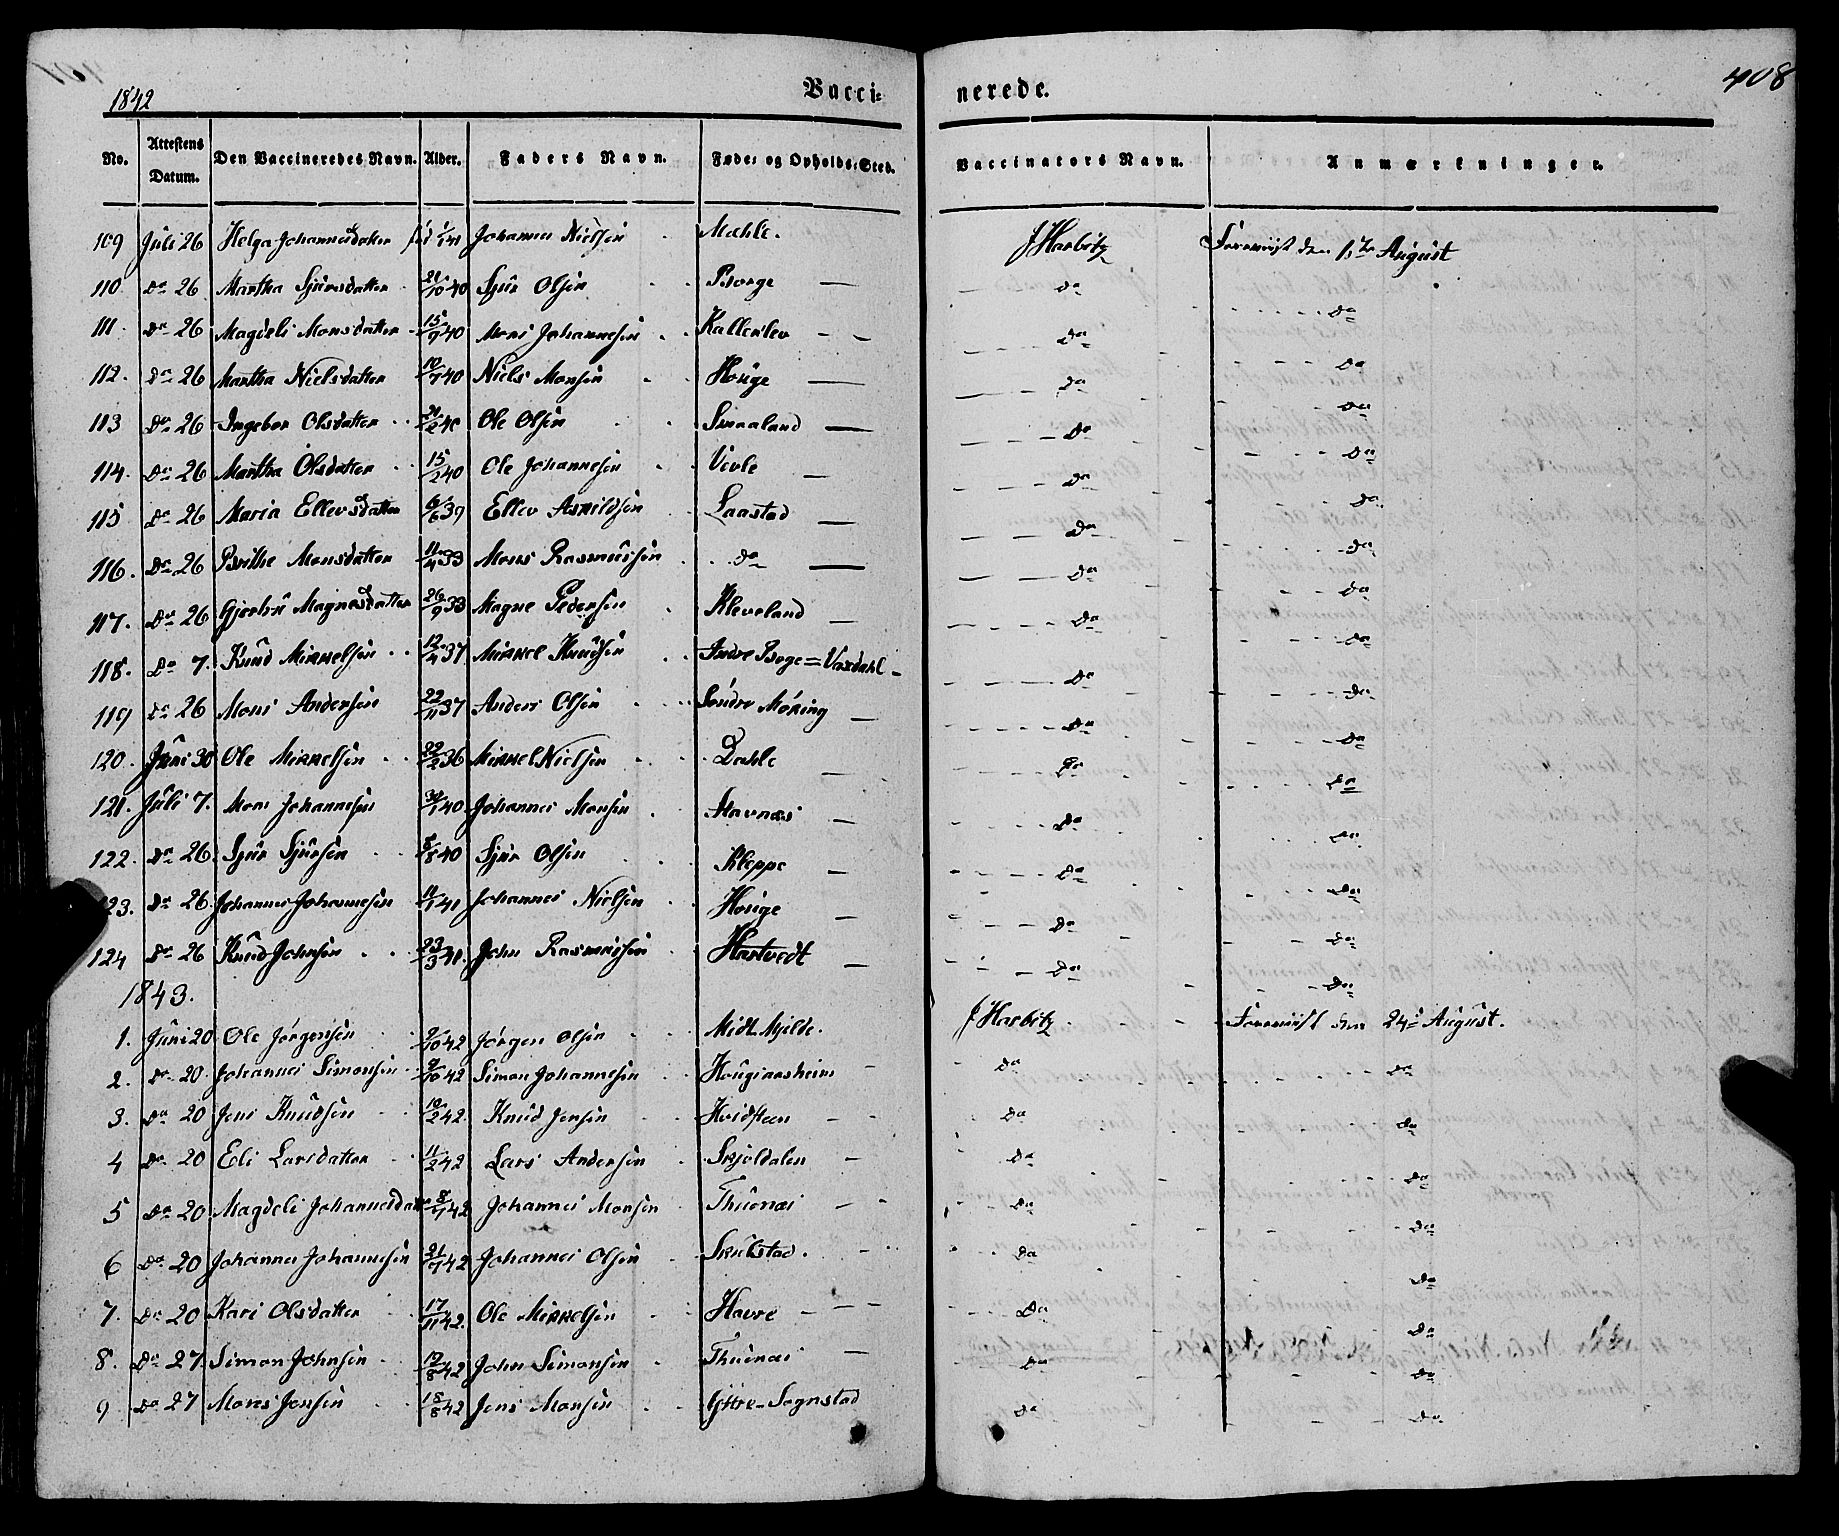 408
1842 Vacci- nerede.
No. Attestens Datum. Den Vaccineredes Navn. Alder. Faders Navn. Føde- og Opholds-Sted. Vaccinators Navn. Anmærkninger.
109 Juli 26 Helga Johannesdatter 1/41 Johannes Nielsen Mæhle. J Harbitz Foreviist den 1ste August
110 Do 26 Martha Sjursdatter 21/10 40 Sjur Olsen Borge Do Do
111 Do 26 Magdeli Monsdatter 15/9 40 Mons Johannesen Kallerlev Do Do
112. Do 26 Martha Nielsdatter 10/7 40 Niels Monsen Houge Do Do
113 Do 26 Ingebor Olsdatter 40 Ole Olsen Smaaland Do Do
114. Do 26 Martha Olsdatter 15/2 40 Ole Johannesen Vevle Do Do
115 Do 26 Maria Ellevsdatter 6/6 39 Ellev Asmildsen Laastad Do Do
116. Do 26 Brithe Monsdatter 11/4 33 Mons Rasmussen Do Do Do
117. Do 26 Gjertru Magnesdatter 26/9 33 Magne Pedersen Kleveland Do Do
118. Do 7. Knud Mikkelsen 12/4 37 Mikkel Knudsen Indre Boge = Vaxdahl Do Do
119 Do 26 Mons Andersen 22/11 37 Anders Olsen Søndre Møring Do Do
120. Juni 30 Ole Mikkelsen 22/2 36 Mikkel Nielsen Dahle Do Do
121. Juli 7. Mons Johannesen 30/1 40 Johannes Monsen Stavnæs Do Do
122. Do 26. Sjur Sjursen 8/8 40 Sjur Olsen Kleppe Do Do
123. Do 26 Johannes Johannesen 11/1 41 Johannes Nielsen Houge Do Do
124 Do 26 Knud Johnsen 23/3 41. John Rasmussen Hartvedt Do Do
1843.
1. Juni 20 Ole Jørgensen 9/10 42 Jørgen Olsen Midt Mjelde. J Harbitz Foreviist den 24de August.
2. Do 20. Johannes Simonsen 9/10 42 Simon Johannesen Hougiarsheim Do Do
3. Do 20 Jens Knudsen 10/2 42. Knud Jensen Hvidsteen Do Do
4 Do 20 Eli Larsdatter 11/2 42 Lars Andersen Skjoldalen Do Do
5 Do 20 Magdeli Johannesdatter 8/1 42 Johannes Monsen Thuenæs Do Do
6 Do 20 Johannes Johannesen 21/7 42 Johannes Olsen Skulstad. Do Do
7. Do 20 Kari Olsdatter 17/11 42. Ole Mikkelsen Havre Do Do
8. Do 27. Simon Johnsen 13/8 42 John Simonsen Thuenæs Do Do
9 Do 27 Mons Jensen 18/8 42 Jens Monsen Yttre-Sognstad Do Do